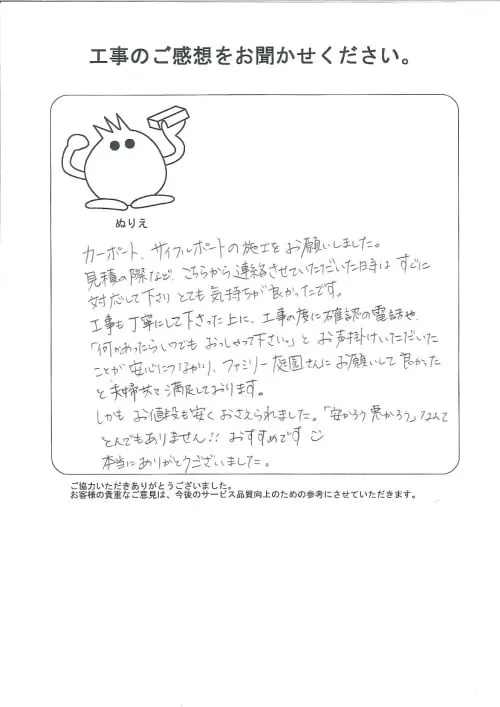 工事のご感想をお聞かせください。
ぬりえ
カーポート、サイクルポートの施工をお願いしました。
見積の際など、こちらから連絡させていただいた時は すぐに
対応して下さり とても気持ちが良かったです。
工事も丁寧にして下さった上に、工事の度に確認の電話や、
「何かあったらいつでも おっしゃって下さい。」と お声掛けいただいた
ことが 安心につながり、ファミリー庭園さんに お願いして 良かった
と 夫婦共々 満足しております。
しかも お値段も安く おさえられました。「安かろう悪かろう」なんて
とんでもありません!! おすすめです
本当にありがとうございました。
ご協力いただきありがとうございました。
お客様の貴重なご意見は、今後のサービス品質向上のための参考にさせていただきます。